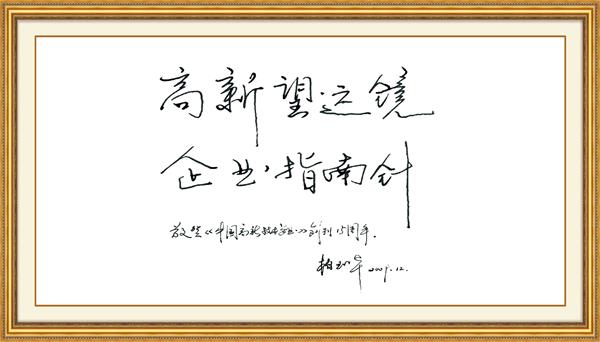 高新望远镜
企业,指南针
《中国高新技术企业》创刊15周年.
2009.12.